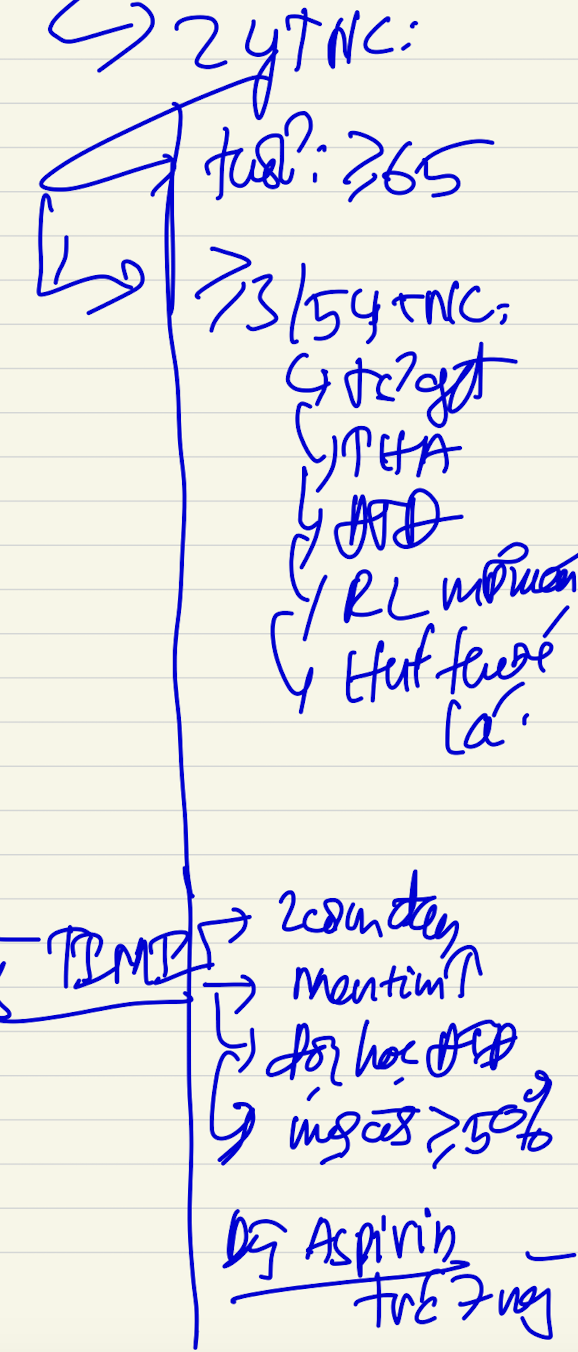 2 ytNC:
tuổi: ≥65
≥3/5 ytNC:
tc?gđ
THA
ĐTĐ
RL mỡ máu
Hút thuốc
lá.
TIMI
2 cơn đau
men tim ↑
động học ĐTĐ
mạch ≥50%
Dg Aspirin
trc 7 ng